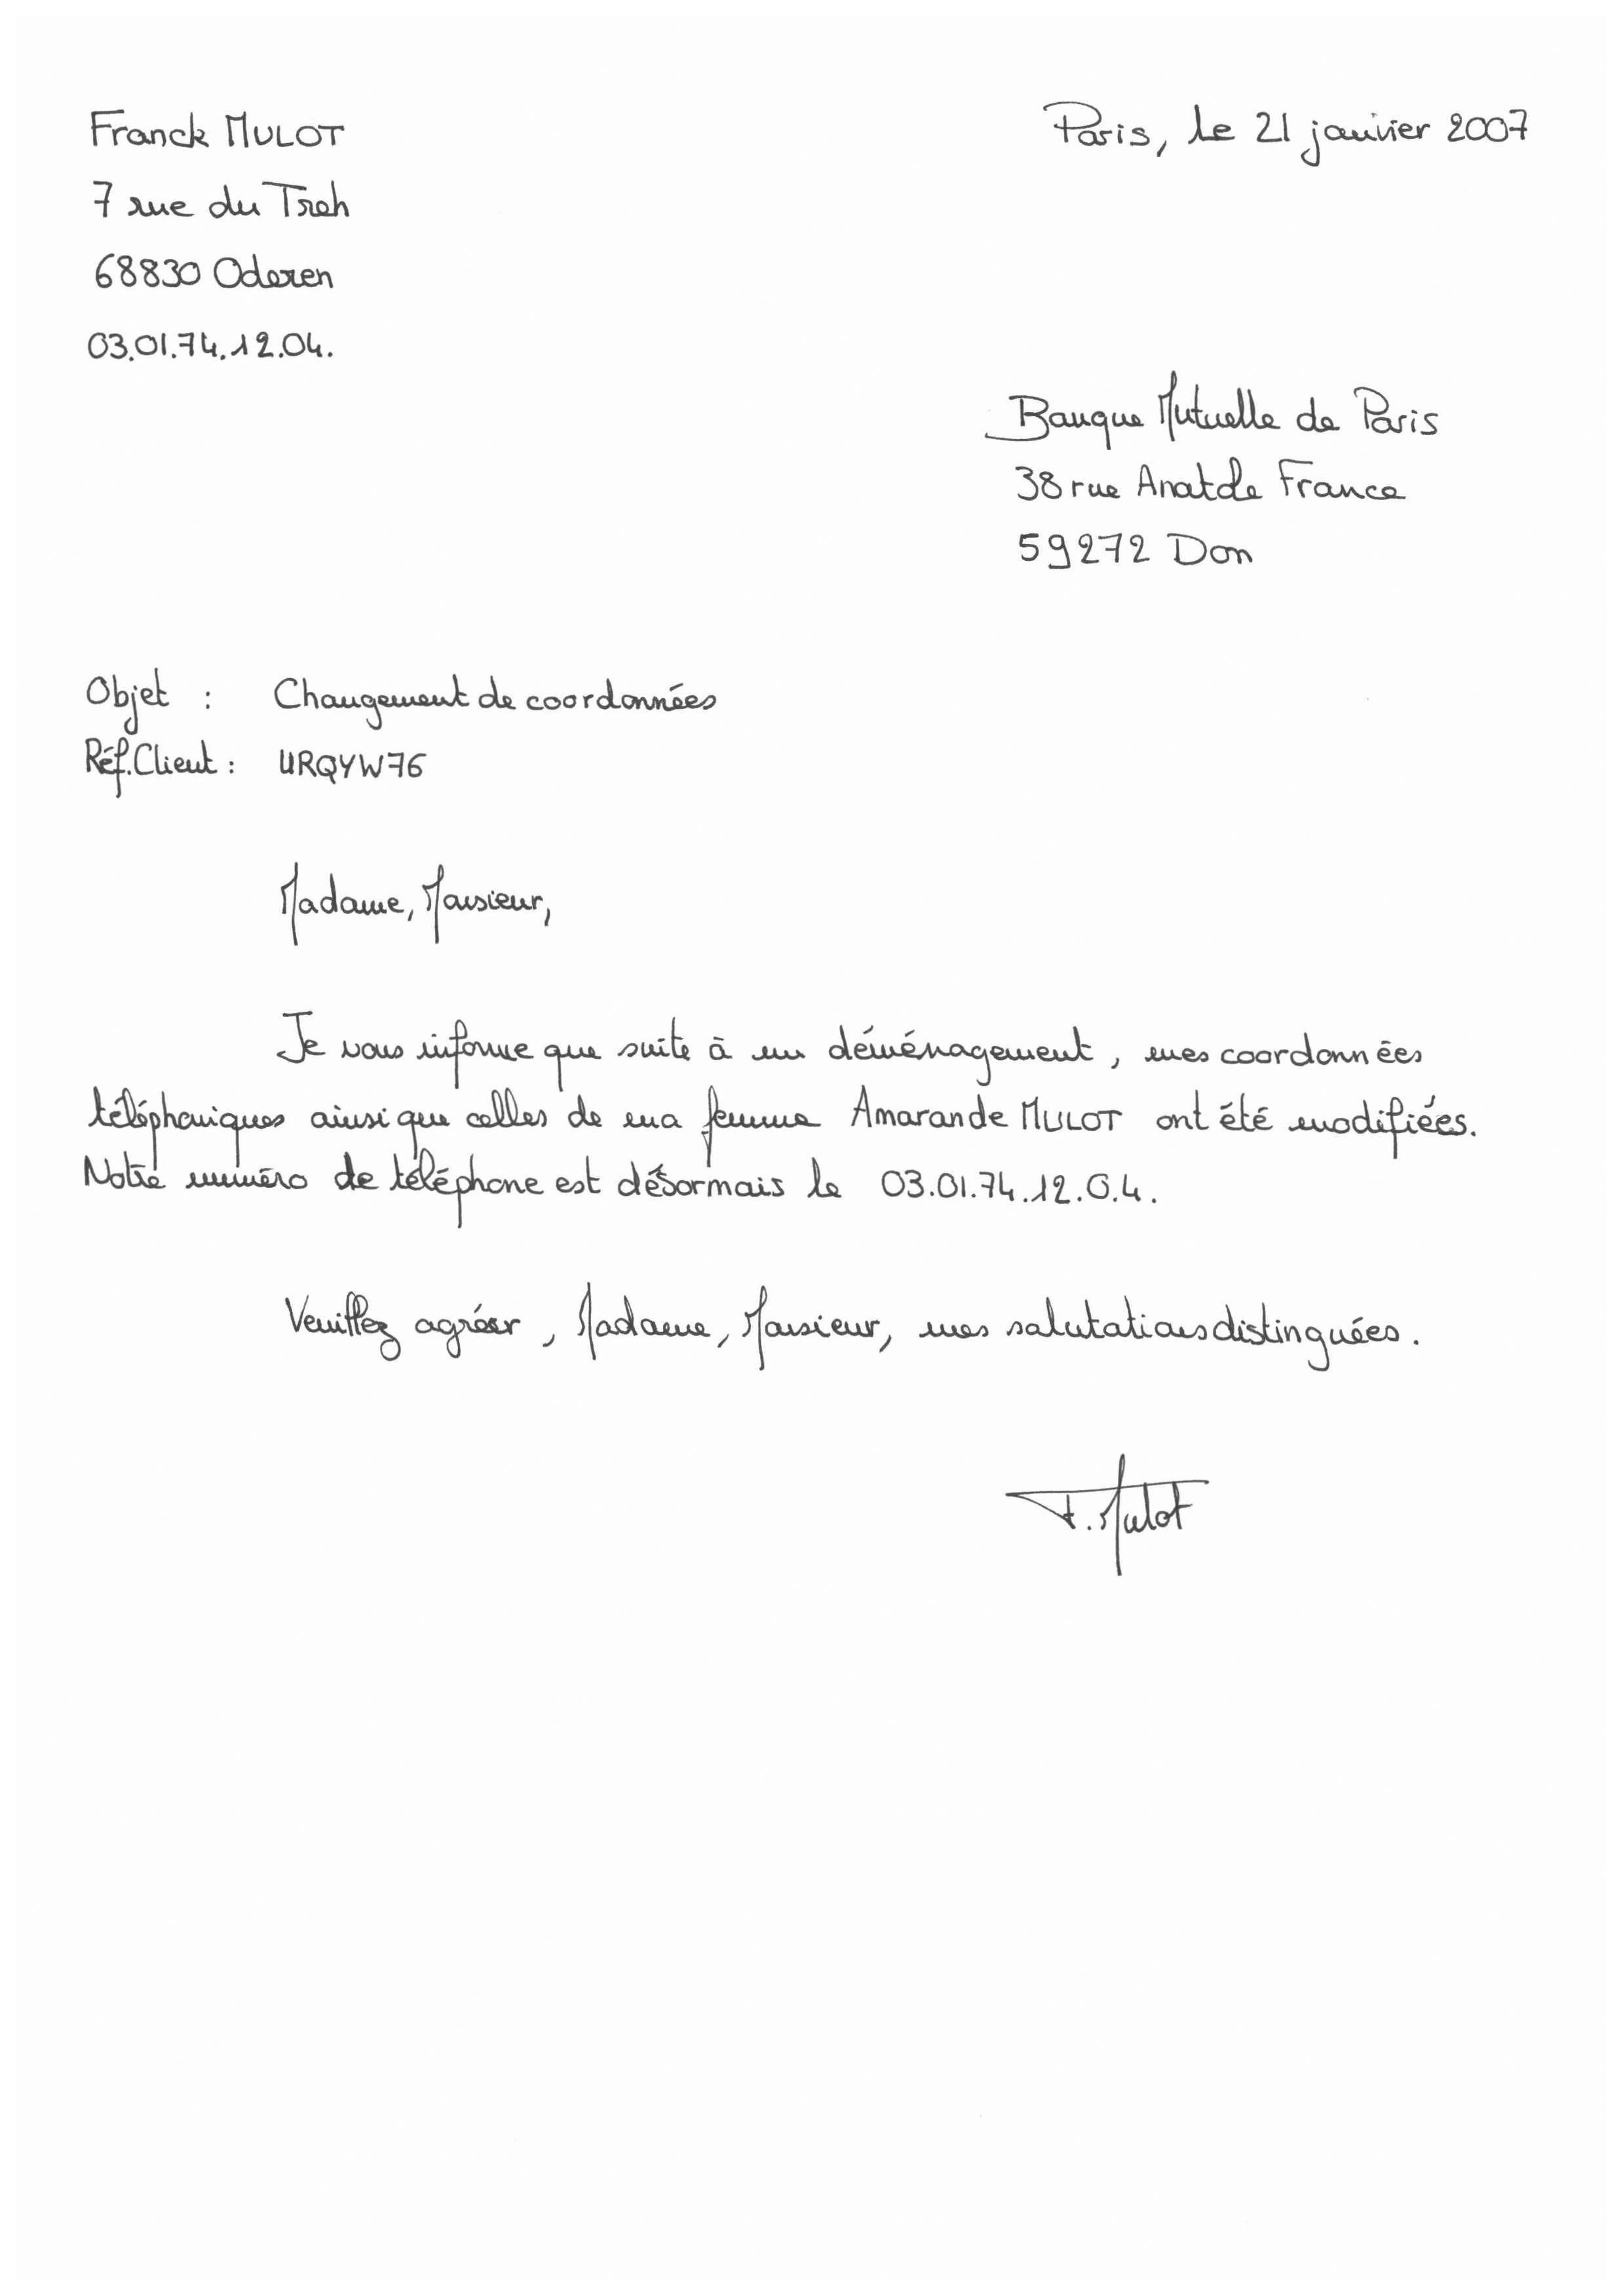 Franck MULOT
Paris, le 21 janvier 2007
7 rue du Treh
68830 Oderen
03.01.74.12.04.
Banque Mutuelle de Paris
38 rue Anatole France
59272 Don
Objet : Changement de coordonnées
Réf.Client : URQYW76
Madame, Monsieur,
Je vous informe que suite à un déménagement, mes coordonnées
téléphoniques ainsi que celles de ma femme Amarande MULOT ont été modifiées.
Notre numéro de téléphone est désormais le 03.01.74.12.0.4.
Veuillez agréer, Madame, Monsieur, mes salutations distinguées.
F. Mulot